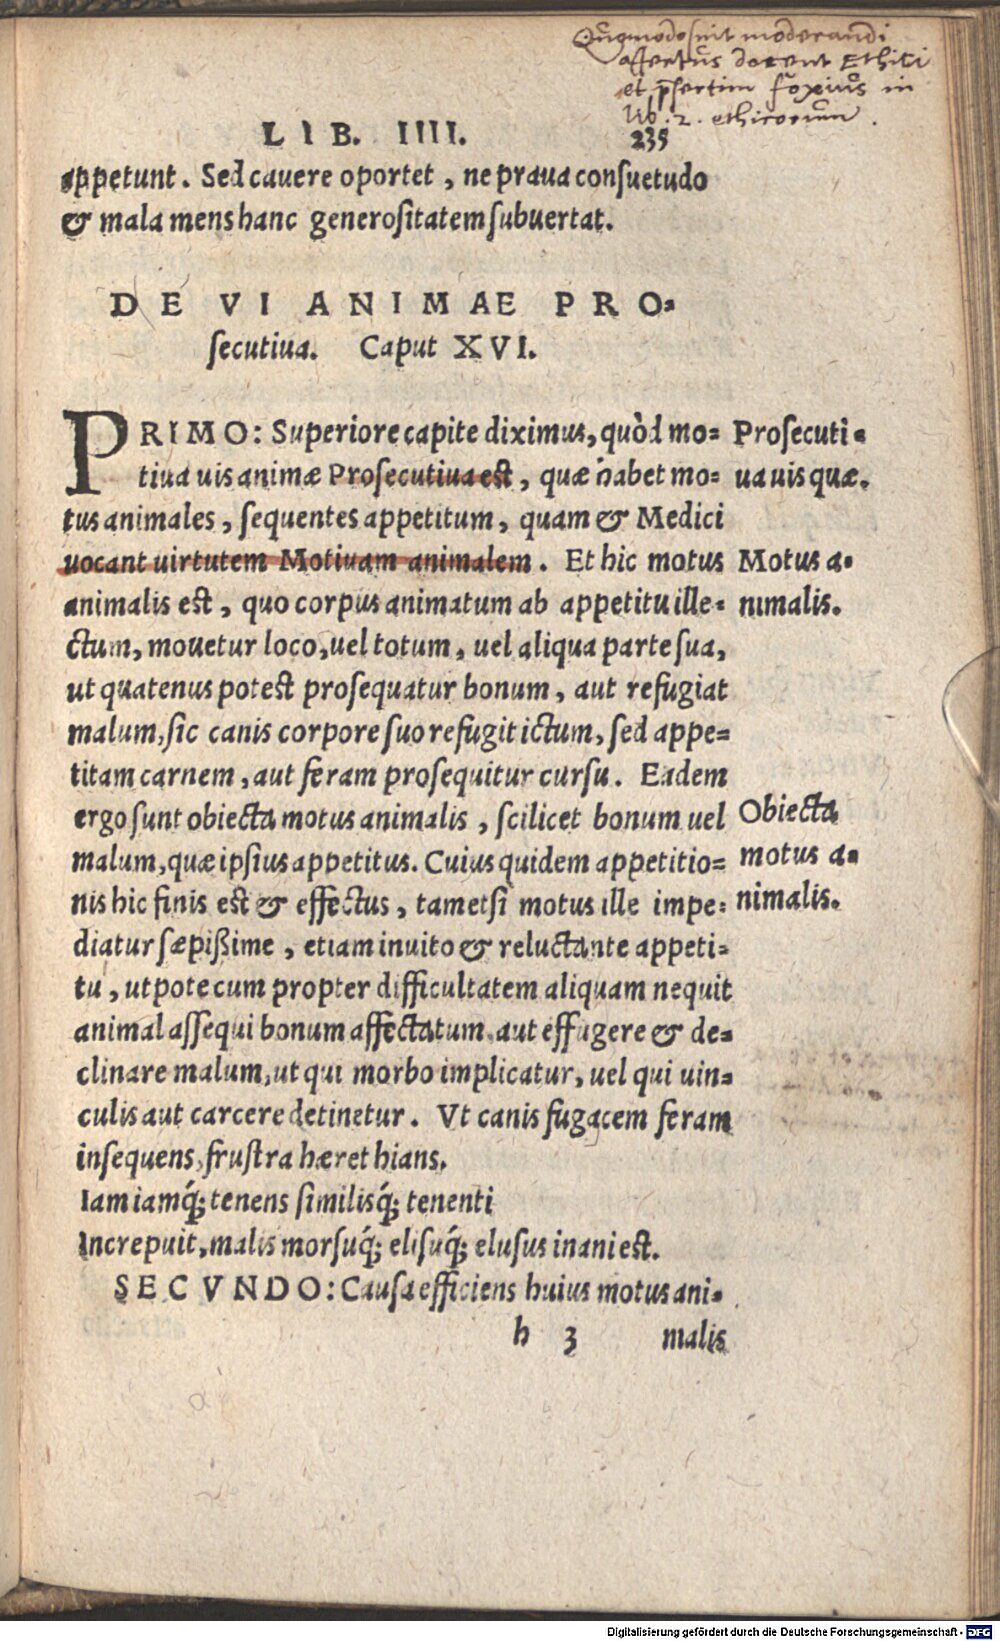 Quomodo sint moderandi
affectus docent Ethici
et p̱sertim foxius in
lib. 2. ethicorum.
LIB. IIII. 235
appetunt. Sed cauere oportet, ne praua consuetudo
& mala mens hanc generositatem subuertat.
DE VI ANIMAE PRO=
secutiua. Caput XVI.
PRIMO: Superiore capite diximus, quòd mo=
tiua uis animæ Prosecutiua est, quæ habet mo=
tus animales, sequentes appetitum, quam & Medici
uocant uirtutem Motiuam animalem. Et hic motus
animalis est, quo corpus animatum ab appetitu ille=
ctum, mouetur loco, uel totum, uel aliqua parte sua,
ut quatenus potest prosequatur bonum, aut refugiat
malum, sic canis corpore suo refugit ictum, sed appe=
titam carnem, aut feram prosequitur cursu. Eadem
ergo sunt obiecta motus animalis, scilicet bonum uel
malum, quæ ipsius appetitus. Cuius quidem appetitio=
nis hic finis est & effectus, tametsi motus ille impe=
diatur sæpißime, etiam inuito & reluctante appeti=
tu, utpote cum propter difficultatem aliquam nequit
animal assequi bonum affectatum, aut effugere & de=
clinare malum, ut qui morbo implicatur, uel qui uin=
culis aut carcere detinetur. Vt canis fugacem feram
insequens, frustra hæret hians.
Iam iamq́; tenens similisq́; tenenti
Increpuit, malis morsuq́; elisuq́; elusus inani est.
SECVNDO: Causa efficiens huius motus ani=
h 3 malis
Prosecuti=
ua uis quæ.
Motus a=
nimalis.
Obiecta
motus a=
nimalis.
Digitalisierung gefördert durch die Deutsche Forschungsgemeinschaft - DFG